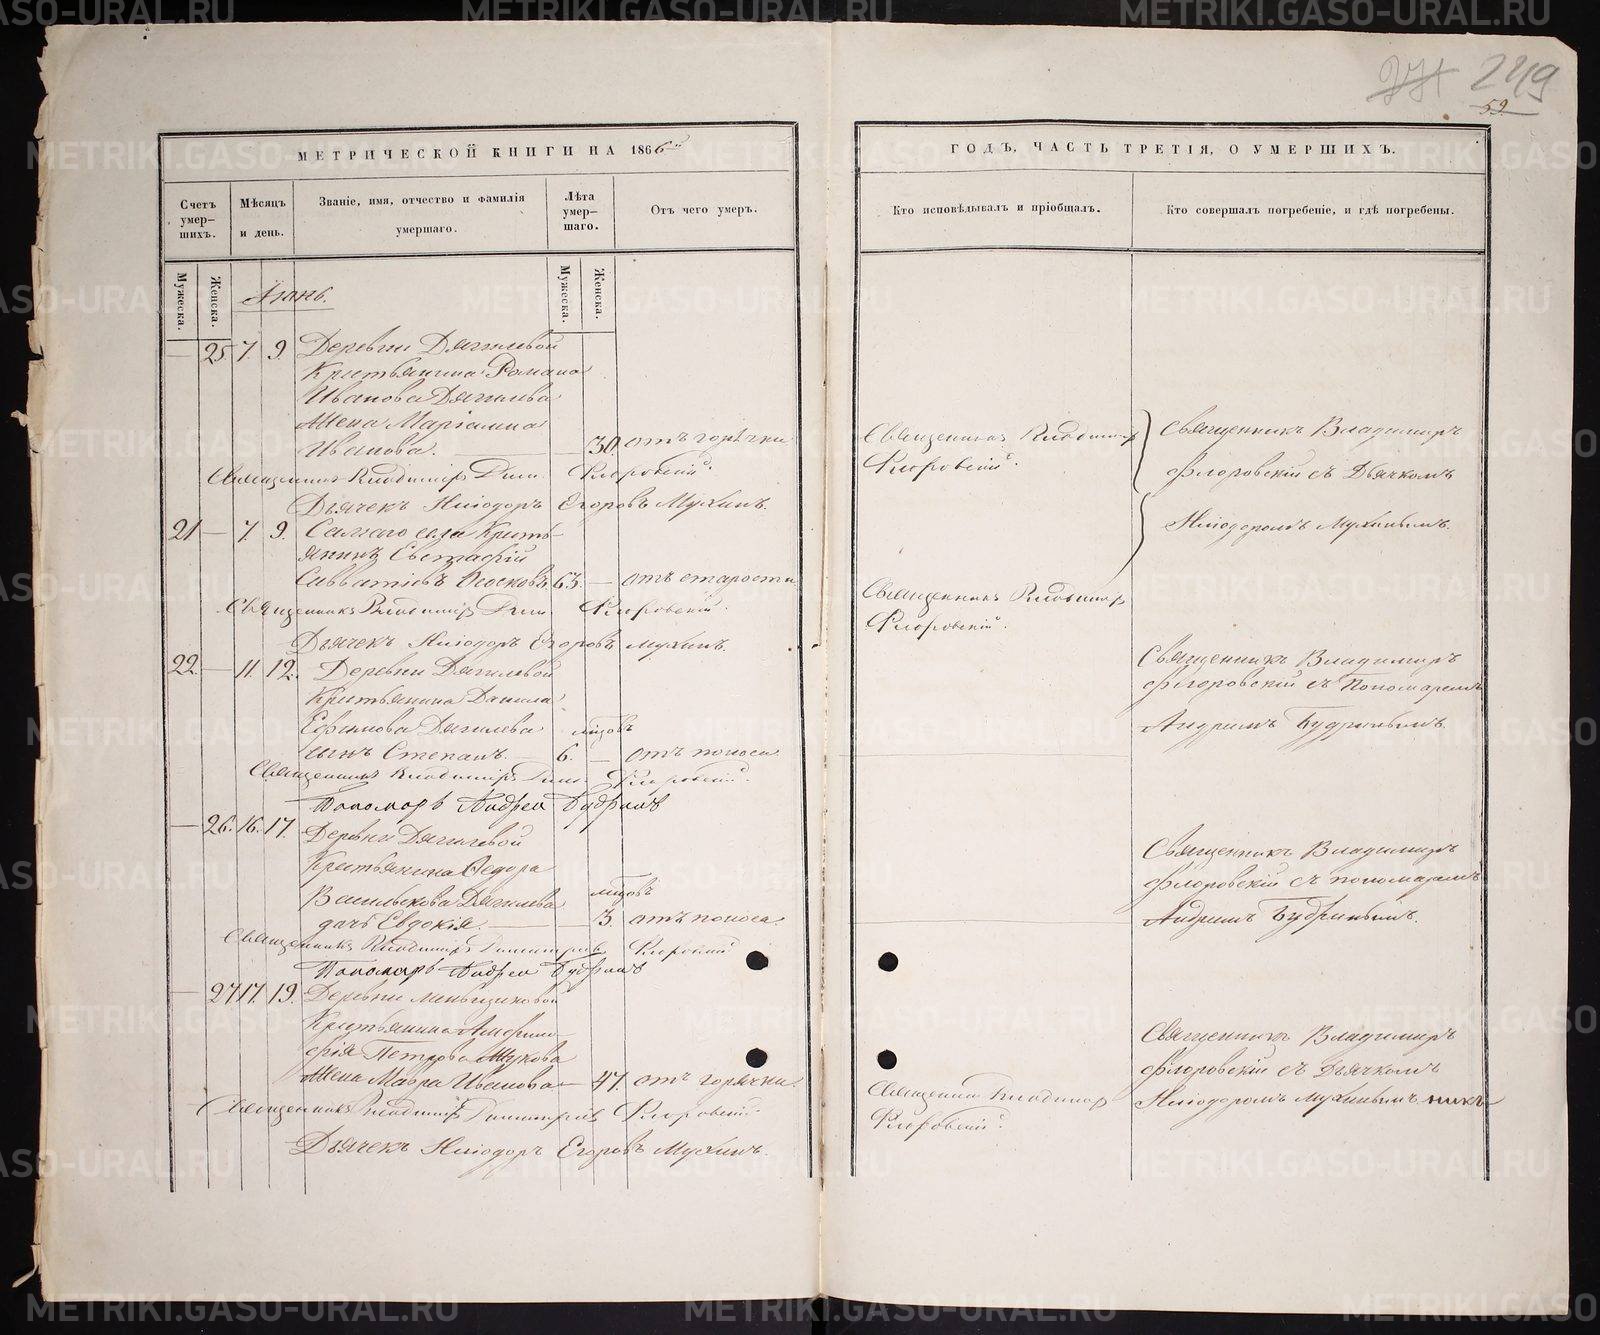 249
59.
МЕТРИЧЕСКОЙ КНИГИ НА 1866й
Счетъ умер-шихъ.
Мѣсяцъ и день.
Званіе, имя, отчество и фамилія умершаго.
Лѣта умер-шаго.
Отъ чего умеръ.
Мужеска.
Женска.
Мужеска.
Женска.
Іюнь.
— 25 7 9. Деревни Дягилевой
Крестьянина Романа
Иванова Дягилева
Жена Маріамна
Иванова. — 30 отъ горячки
Священникъ Владиміръ Дим. Флоровскій.
Дьячекъ Иліодоръ Егоровъ Мухинъ.
21 — 7. 9. Самаго села Кресть-
янинъ Евстафій
Савватіевъ 63. — отъ старости
Священникъ Владиміръ Дим. Флоровскій.
Дьячекъ Иліодоръ Егоровъ Мухинъ.
22. — 11. 12. Деревни Дягилевой
Крестьянина Данила
Ефимова Дягилева мѣсцовъ
сынъ Степанъ. — 6. — отъ поноса
Священникъ Владиміръ Дим. Флоровскій.
Пономарь Андрей Будринъ
— 26. 16. 17. Деревни Дягилевой
Крестьянина Ѳедора
Васильева Дягилева мѣсцовъ
дочь Евдокія. — 3. отъ поноса.
Священникъ Владиміръ Димитріевъ Флоровскій
Пономарь Андрей Будринъ
— 27 17. 19. Деревни Меньщиковой
Крестьянина
Петрова Жукова
Жена Мавра Иванова — 47. отъ горячки.
Священникъ Владиміръ Димитріевъ Флоровскій.
Дьячекъ Иліодоръ Егоровъ Мухинъ.
ГОДЪ, ЧАСТЬ ТРЕТІЯ, О УМЕРШИХЪ.
Кто исповѣдывалъ и пріобщалъ.
Кто совершалъ погребеніе, и гдѣ погребены.
Священникъ Владиміръ
Флоровскій.
Священникъ Владимиръ
Флоровскій съ Дьячкомъ
Иліодоромъ Мухинымъ.
Священникъ Владиміръ
Флоровскій.
Священникъ Владимиръ
Флоровскій съ Пономаремъ
Андреемъ Будринымъ.
Священникъ Владимиръ
Флоровскій съ пономаремъ
Андреемъ Будринымъ.
Священникъ Владиміръ
Флоровскій.
Священникъ Владимиръ
Флоровскій съ Дьячкомъ
Иліодоромъ Мухинымъ
METRIKI.GASO-URAL.RU